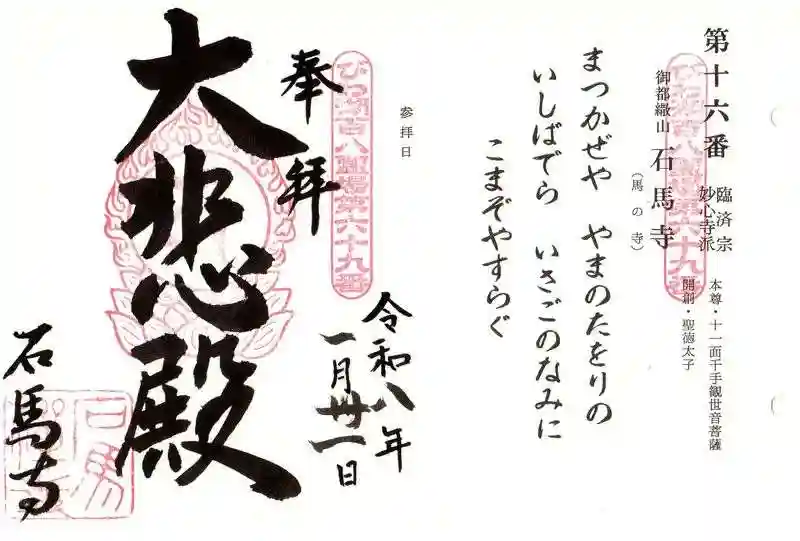 第十六番
臨済宗
妙心寺派
本尊・十一面千手観世音菩薩
開創・聖徳太子
御都繖山
石馬寺
(馬の寺)
びわ湖百八霊場第六十九番
まつかぜや　やまのたをりの
いしばでら　いさごのなみに
こまぞやすらぐ
参拝日
びわ湖百八霊場第六十九番
奉拝
令和八年
一月卅一日
大悲殿
石馬寺
石馬